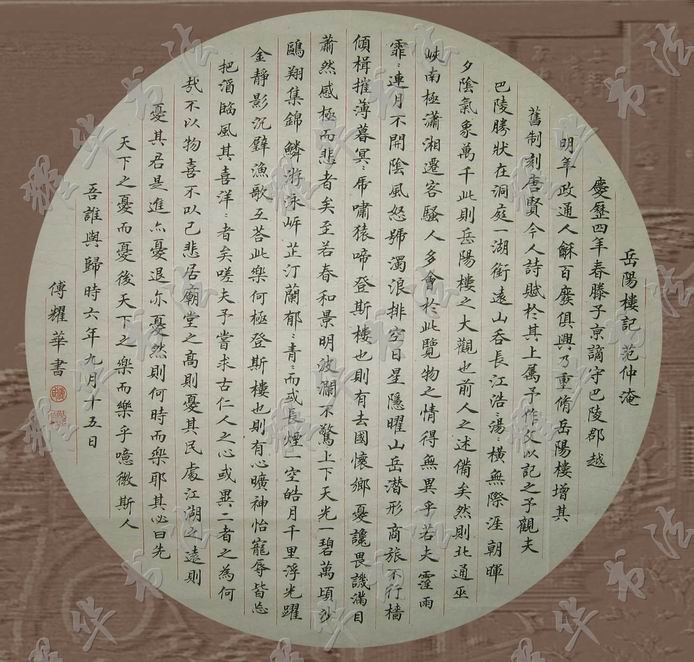 岳陽樓記 范仲淹
慶歷四年春滕子京謫守巴陵郡越
明年政通人龢百廢俱興乃重脩岳陽樓增其
舊制刻唐賢今人詩賦於其上屬予作文以記之予觀夫
巴陵勝狀在洞庭一湖銜遠山吞長江浩:湯:橫無際涯朝暉
夕陰氣象萬千此則岳陽樓之大觀也前人之述備矣然則北通巫
峽南極瀟湘遷客騷人多會於此覽物之情得無異乎若夫霪雨
霏:連月不開陰風怒號濁浪排空日星隱曜山岳潛形商旅不行檣
傾楫摧薄暮冥:虎嘯猿啼登斯樓也則有去國懷鄉憂讒畏譏滿目
蕭然感極而悲者矣至若春和景明波瀾不驚上下天光一碧萬頃沙
鷗翔集錦鱗游泳岸芷汀蘭郁:青:而或長煙一空皓月千里浮光躍
金靜影沉璧漁歌互荅此樂何極登斯樓也則有心曠神怡寵辱皆忘
把酒臨風其喜洋:者矣嗟夫予嘗求古仁人之心或異二者之為何
哉不以物喜不以己悲居廟堂之高則憂其民處江湖之遠則
憂其君是進亦憂退亦憂然則何時而樂耶其必曰先
天下之憂而憂後天下之樂而樂乎噫微斯人
吾誰與歸時六年九月十五日
傅耀華書